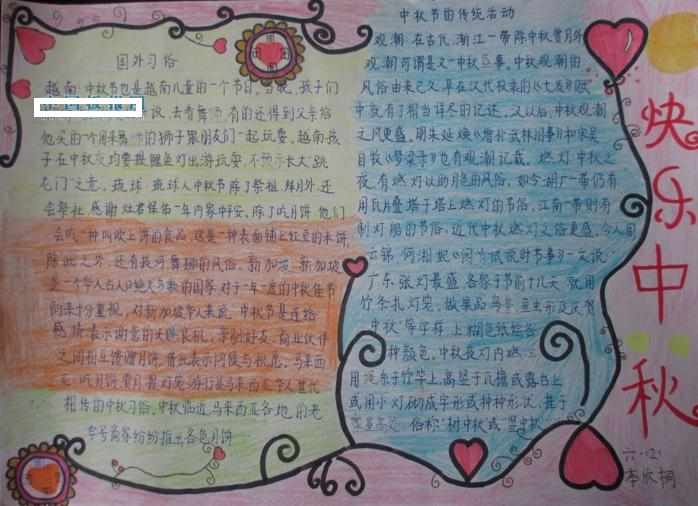 国外习俗
越南:中秋节也是越南儿童的一个节日,当晚,孩子们
说,去看舞狮,有的还得到父亲给
他买的
的狮子跟朋友们一起玩耍,越南孩
子在中秋夜均要提鲤鱼灯出游玩耍,不预示长大"跳
龙门"之意,琉球:琉球人中秋节除了祭祖、拜月外,还
会祭灶,感谢灶君保佑一年内家中平安,除了吃月饼,他们
会吃一种叫吹上饼的食品,这是一种表面铺上红豆的米饼,
除此之外,还有夜河舞狮的风俗。新加坡:新加坡
是一个华人占人口绝大多数的国家,对于一年一度的中秋佳节
向来十分重视,对新加坡华人来说,中秋节是连络
感情表示谢意的天赐良机,亲朋好友、商业伙伴
之间相互馈赠月饼,借此表示问候与祝愿。马来西
亚:吃月饼、赏月、提灯笼游行是马来西亚华人世代
相传的中秋习俗,中秋临近,马来西亚各地的老
字号商家纷纷推出各色月饼
中秋节的传统活动
观潮:在古代,浙江一带除中秋赏月外
观潮可谓是又一中秋盛事,中秋观潮的
风俗由来已久,早在汉代枚乘的《七发》赋
中就有了相当详尽的记述,汉以后,中秋观潮
之风更盛,明朱延焕《增补武林旧事》和宋吴
自牧《梦粱录》也有观潮记载。燃灯:中秋之
夜,有燃灯以助月色的风俗,如今湖广一带仍有
用瓦片叠塔于塔上燃灯的节俗,江南一带则有
制灯船的节俗,近代中秋燃灯之俗更盛,今人周
云锦、何湘妃《闲情试说时节事》一文说
广东张灯最盛,各家于节前十几天,就用
竹条扎灯笼,做果品、鸟兽、鱼虫形及庆贺
中秋"等字样,上糊色纸绘各
种颜色,中秋夜灯内燃
用绳系于竹竿上,高竖于瓦檐或露台上
或用小灯砌成字形或种种形状,挂于
家屋高处,俗称"树中秋"或"竖中秋"
快乐中秋